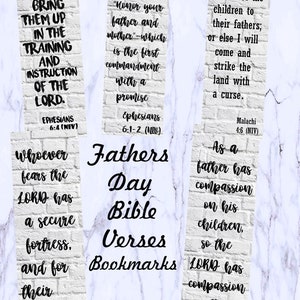 BRING
THEM UP
IN THE
TRAINING
AND
INSTRUCTION
OF THE
LORD.
EPHESIANS
6:4 (NIV)
Honor your
father and
mother-which
is the first
commandment
with a
promise
Ephesians
6:1-2 (NIV)
children to
their fathers;
or else I will
come and
strike the
land with
a curse.
Malachi
4:6 (NIV)
Whoever
fears the
LORD has
a secure
fortress,
and for
their
Fathers
Day
Bible
Verses
Bookmarks
As a
father has
compassion
on his
children,
so the
LORD has
compassion